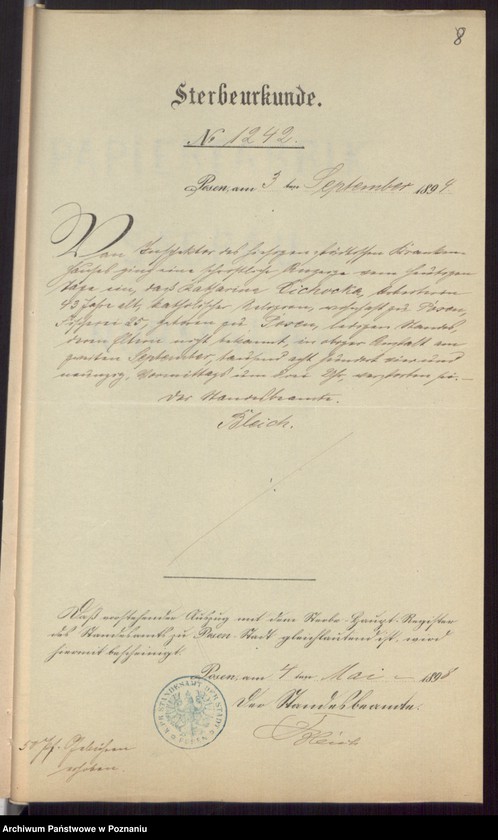 8
Sterbeurkunde.
No 1242.
Posen, am 3 ten September 1894
Vom Inspektor des hiesigen städtischen Kranken-
hauses ging eine schriftliche Anzeige vom heutigen
Tage ein, daß Katharina Cichocka, Arbeiterin
43 Jahre alt, katholischer Religion, wohnhaft zu Posen,
Fischerei 25, geboren zu Posen, ledigen Standes,
deren Eltern nicht bekannt, in obiger Anstalt am
zweiten September, tausend acht hundert vier und
neunzig, Vormittags um drei Uhr, verstorben sei.—
Der Standesbeamte.
Bleich.
Daß vorstehender Auszug mit dem Sterbe-Haupt-Register
des Standesamts zu Posen-Stadt gleichlautend ist, wird
hiermit bescheinigt.
Posen, am 4 ten Mai 1898
Der Standesbeamte.
Bleich
50 Pf. Gebühren
erhoben.
Archiwum Państwowe w Poznaniu